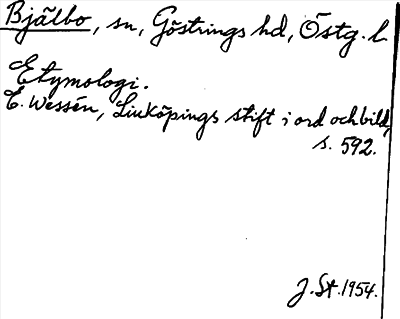 Bjälbo, sn, Göstrings hd, Östg. l.
Etymologi.
E. Wessén, Linköpings stift i ord och bild,
s. 592.
J. St. 1954.